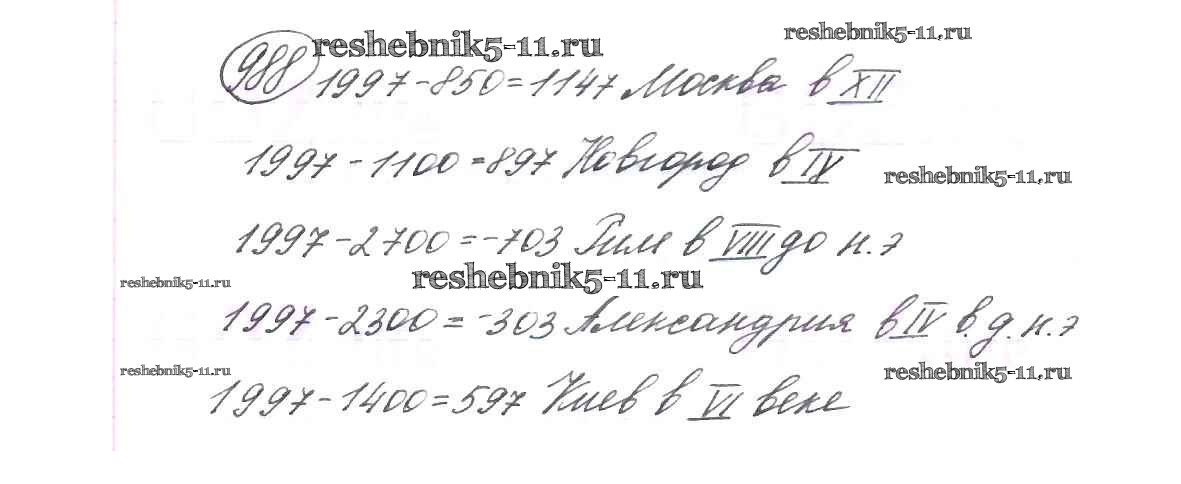 reshebnik5-11.ru
reshebnik5-11.ru
988 1997-850=1147 Москва в XII
1997-1100=897 Новгород в IV
reshebnik5-11.ru
1997-2700=-703 Рим в VIII до н.э
reshebnik5-11.ru
reshebnik5-11.ru
1997-2300=-303 Александрия в IV в.д.н.э
reshebnik5-11.ru
reshebnik5-11.ru
1997-1400=597 Киев в VI веке